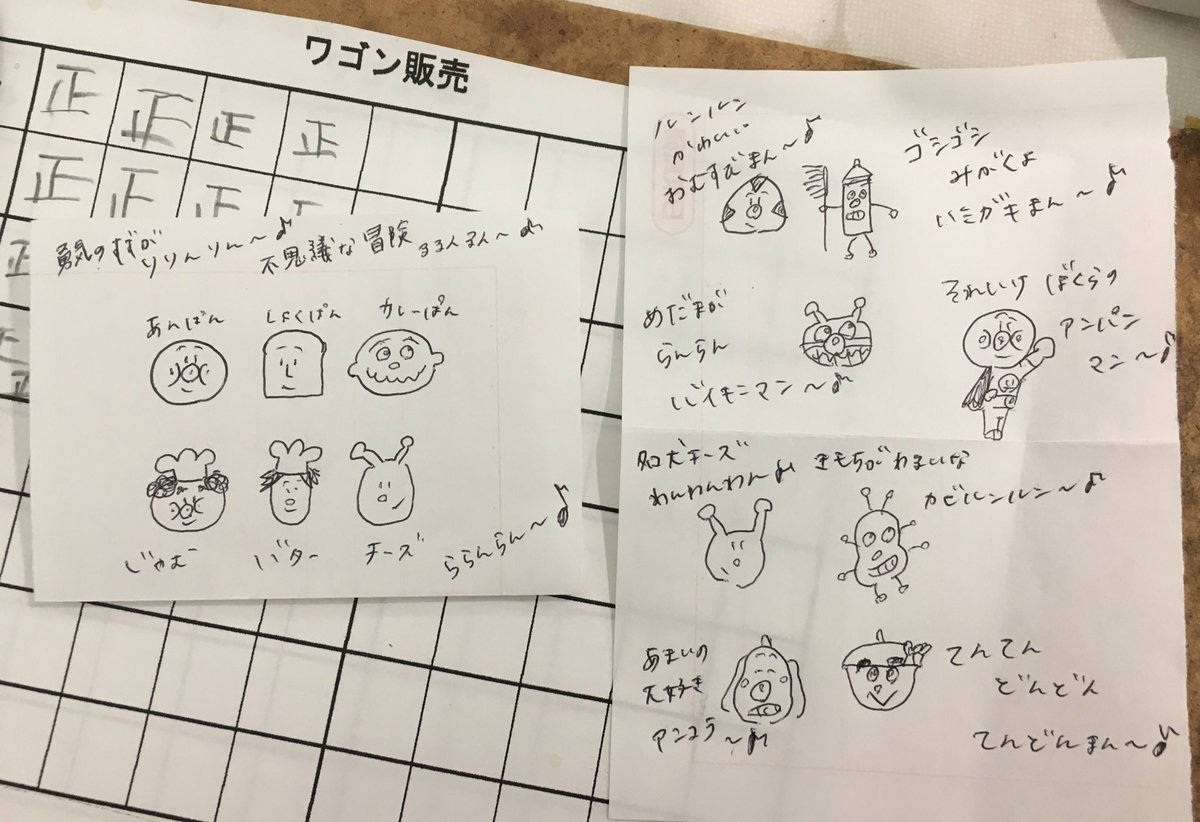 ワゴン販売
正 正 正 正
正 正 正 正
正
正
勇気のすずが
りりんりりん〜♪
不思議な冒険
るんるん〜♪
あんぱん しょくぱん カレーぱん
じゃむ バター チーズ
ららんらん〜♪
ルンルン
かわいい
おむすびまん〜♪
ゴシゴシ
みがくよ
ハミガキまん〜♪
めだまが
らんらん
バイキンマン〜♪
それいけ ぼくらの
アンパン
マン〜♪
名犬チーズ
わんわんわん♪
きもちがわるいな
カビルンルン〜♪
あまいの
大好き
アンコラ〜♪
てんてん
どんどん
てんどんまん〜♪